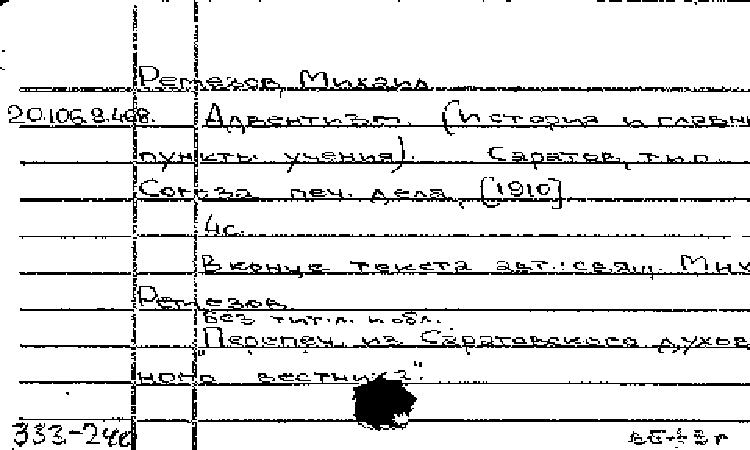 Ремезов, Михаил
20.106.8.408. Адвентизм. (История и главн
пункты учения). Саратов, тип.
Союза печ. дела, [1910]
4с.
В конце текста авт.: свящ. Мих
Ремезов
Без тит. л. и обл.
Перепеч. из "Саратовского духов
ного вестника".
333-24